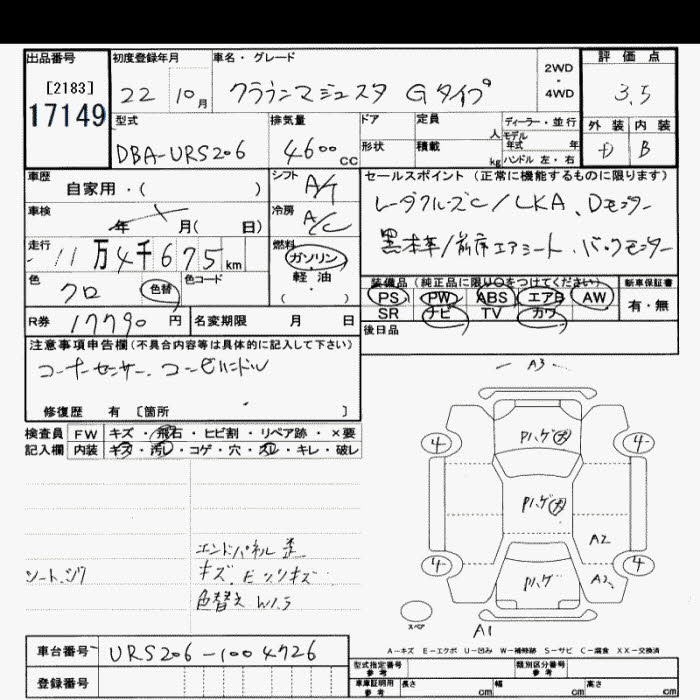 出品番号 初度登録年月 車名・グレード 2WD・4WD 評価点
[2183]
17149 22 10月 クラウンマジェスタ Gタイプ 3.5
型式 排気量 ドア 定員 人 ディーラー・並行 外装 内装
DBA-URS206 4600cc 形状 積載 kg モデル年式 年 ハンドル 左・右 D B
車歴 シフト セールスポイント (正常に機能するものに限ります)
自家用・( ) A/T レーダクルーズC/LKA、Dモニター
車検 年 月( 日) 冷房 A/C 黒本革/前席エアシート、バックモニター
走行 11万4千675km 燃料 ガソリン・軽油・( )
装備品(純正品に限り○をつけてください) 新車保証書
色 クロ 色替 色コード PS PW ABS エアB AW 有・無
SR ナビ TV カワ
R券 17790円 名変期限 月 日 後日品
注意事項申告欄(不具合内容等は具体的に記入して下さい)
コーナーセンサー、コンビハンドル
修復歴 有 〔箇所 〕
検査員 FW キズ・飛石・ヒビ割・リペア跡・×要
記入欄 内装 キズ・汚レ・コゲ・穴・スレ・キレ・破レ
A3
4 4
Pハゲ
Pハゲ
A2
エンドパネル歪
シート、シワ キズ、
色替え W1.5
4 4
Pハゲ A2
スペア A1
A-キズ E-エクボ U-凹み W-補修跡 S-サビ C-腐食 XX-交換済
車台番号 URS206-1004726 型式指定番号 参考 類別区分番号 参考
登録番号 車庫証明用 参考 長さ cm 幅 cm 高さ cm